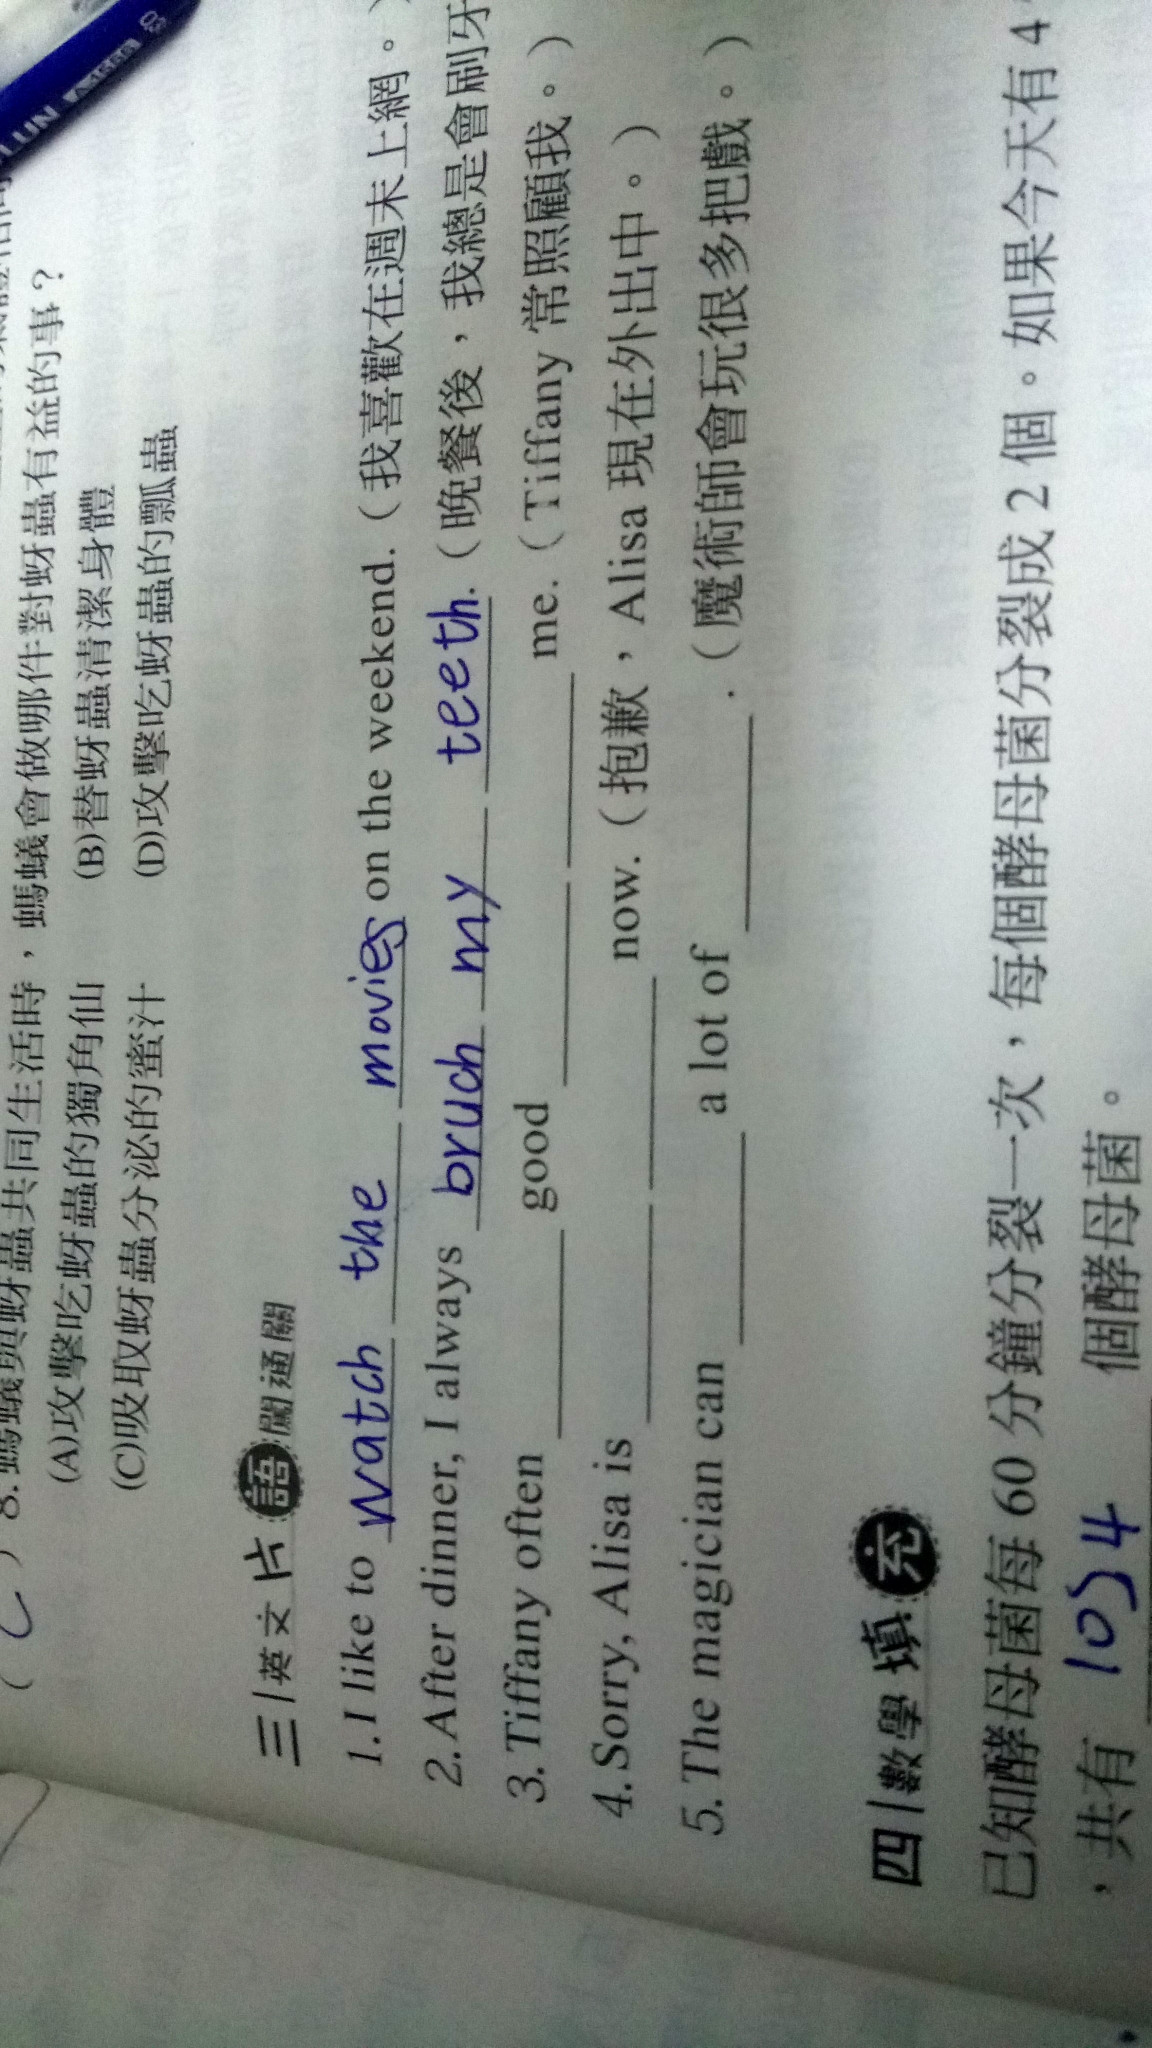 8.螞蟻與蚜蟲共同生活時，螞蟻會做哪件對蚜蟲有益的事？
( C )
(A)攻擊吃蚜蟲的獨角仙 (B)替蚜蟲清潔身體
(C)吸取蚜蟲分泌的蜜汁 (D)攻擊吃蚜蟲的瓢蟲
三 英文片語闖通關
1. I like to watch the movies on the weekend.（我喜歡在週末上網。）
2. After dinner, I always bruch my teeth.（晚餐後，我總是會刷牙
3. Tiffany often good me.（Tiffany 常照顧我。）
4. Sorry, Alisa is now.（抱歉，Alisa 現在外出中。）
5. The magician can a lot of .（魔術師會玩很多把戲。）
四 數學填充
已知酵母菌每 60 分鐘分裂一次，每個酵母菌分裂成 2 個。如果今天有 4
，共有 1034 個酵母菌。